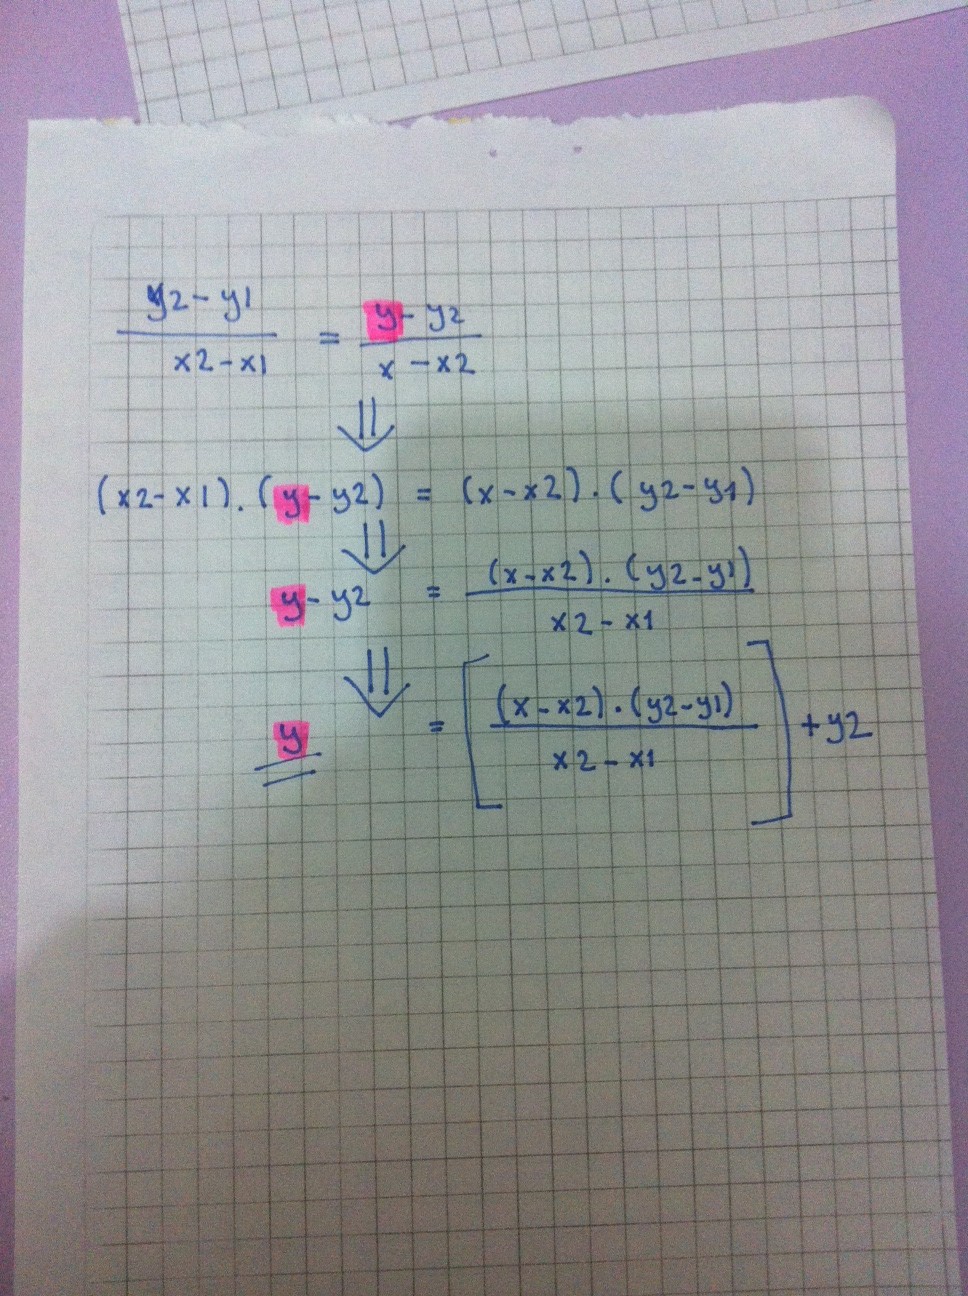 y2 - y1 / x2 - x1 = y - y2 / x - x2
⇓
(x2 - x1) . (y - y2) = (x - x2) . (y2 - y1)
⇓
y - y2 = (x - x2) . (y2 - y1) / x2 - x1
⇓
y = [ (x - x2) . (y2 - y1) / x2 - x1 ] + y2